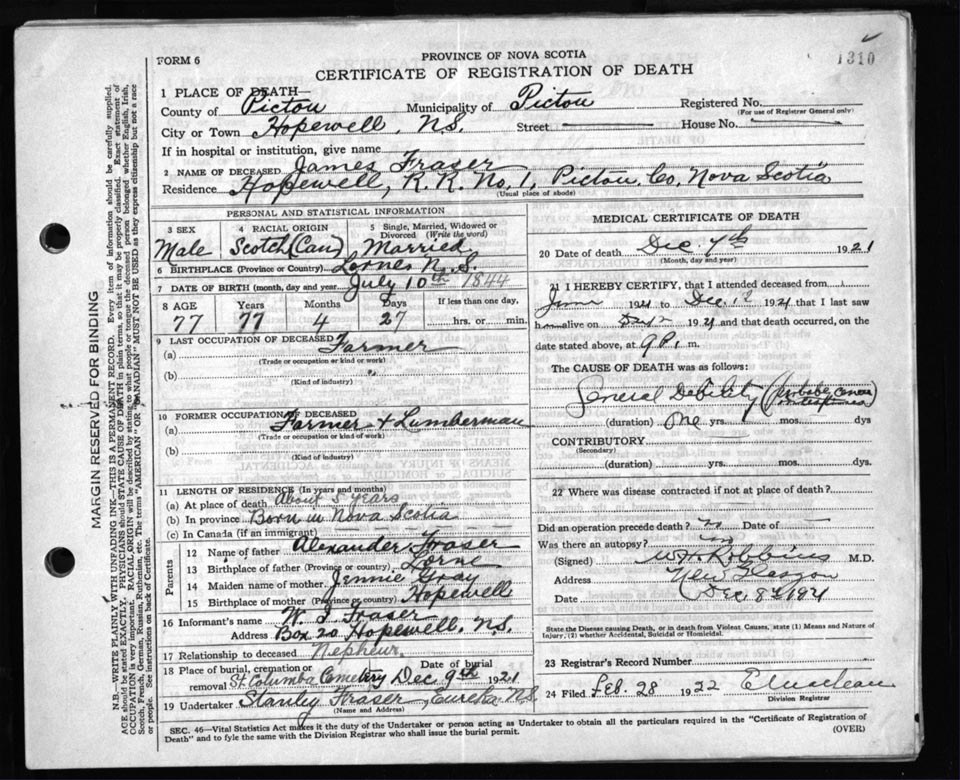 1310
FORM 6
PROVINCE OF NOVA SCOTIA
CERTIFICATE OF REGISTRATION OF DEATH
1 PLACE OF DEATH—
County of Pictou Municipality of Pictou Registered No.
(For use of Registrar General only)
City or Town Hopewell, N.S. Street House No.
If in hospital or institution, give name
2 NAME OF DECEASED James Fraser
Residence Hopewell, R.R. No. 1, Pictou Co, Nova Scotia
(Usual place of abode)
PERSONAL AND STATISTICAL INFORMATION
3 SEX 4 RACIAL ORIGIN 5 Single, Married, Widowed or Divorced (Write the word)
Male Scotch (Can) Married
6 BIRTHPLACE (Province or Country) Lorne N.S.
7 DATE OF BIRTH (month, day and year) July 10th 1844
8 AGE Years Months Days If less than one day,
77 77 4 27 hrs. or min.
9 LAST OCCUPATION OF DECEASED
(a) Farmer
(Trade or occupation or kind or work)
(b)
(Kind of industry)
10 FORMER OCCUPATION OF DECEASED
(a) Farmer + Lumberman
(Trade or occupation or kind of work)
(b)
(Kind of industry)
11 LENGTH OF RESIDENCE (In years and months)
(a) At place of death About 5 years
(b) In province Born in Nova Scotia
(c) In Canada (if an immigrant)
Parents
12 Name of father Alexander Fraser
13 Birthplace of father (Province or country) Lorne
14 Maiden name of mother Jennie Gray
15 Birthplace of mother (Province or country) Hopewell
16 Informant's name Fraser
Address Box 20 Hopewell, N.S.
17 Relationship to deceased Nephew
18 Place of burial, cremation or removal St. Columba Cemetery Date of burial Dec 9th 1921
19 Undertaker Stanley Fraser, Eureka N.S.
(Name and Address)
MEDICAL CERTIFICATE OF DEATH
20 Date of death Dec 7th 1921
(Month, day and year)
21 I HEREBY CERTIFY, that I attended deceased from
June 1921 to Dec 1921 that I last saw
h alive on Dec 2 1921 and that death occurred, on the
date stated above, at 9 P. m.
The CAUSE OF DEATH was as follows:
General Debility (probably cancer
(duration) One yrs. mos. dys
CONTRIBUTORY
(Secondary)
(duration) yrs. mos. dys.
22 Where was disease contracted if not at place of death?
Did an operation precede death? no Date of
Was there an autopsy? no
(Signed) Robbins M.D.
Address New Glasgow
Date Dec 8th 1921
State the Disease causing Death, or in death from Violent Causes, state (1) Means and Nature of Injury, (2) whether Accidental, Suicidal or Homicidal.
23 Registrar's Record Number
24 Filed Feb. 28 1922
Division Registrar
SEC. 46—Vital Statistics Act makes it the duty of the Undertaker or person acting as Undertaker to obtain all the particulars required in the "Certificate of Registration of
Death" and to fyle the same with the Division Registrar who shall issue the burial permit.
(OVER)
MARGIN RESERVED FOR BINDING
N.B.—WRITE PLAINLY WITH UNFADING INK—THIS IS A PERMANENT RECORD. Every item of information should be carefully supplied.
AGE should be stated EXACTLY. PHYSICIANS should STATE CAUSE OF DEATH in plain terms, so that it may be properly classified. Exact statement of
OCCUPATION is very important. RACIAL ORIGIN will be described by stating to what people or tongue the deceased person belonged whether English, Irish,
Scotch, French, German, Russian, Ruthenian, etc. The terms "AMERICAN" OR "CANADIAN" MUST NOT BE USED as they express citizenship but not a race
or people. See instructions on back of Certificate.